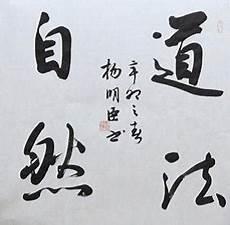 道法
自然
辛卯之春
杨明臣书